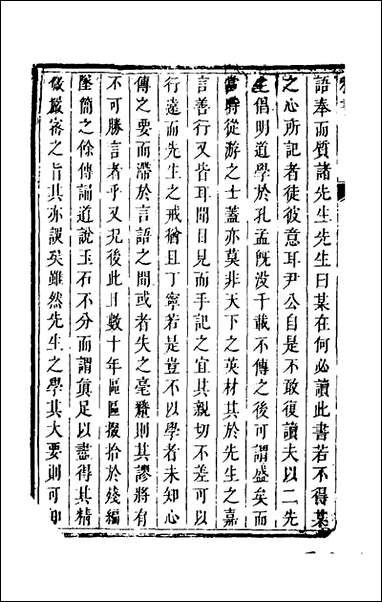 語奉而質諸先生先生曰某在何必讀此書若不得某
之心所記者徒彼意耳尹公自是不敢復讀夫以二先
生倡明道學於孔孟旣沒千載不傳之後可謂盛矣而
當時從游之士蓋亦莫非天下之英材其於先生之嘉
言善行又皆耳聞目見而手記之宜其親切不差可以
行遠而先生之戒猶且丁寧若是豈不以學者未知心
傳之要而滯於言語之間或者失之毫釐則其謬將有
不可勝言者乎又況後此且數十年區區掇拾於殘編
墜簡之餘傳誦道說玉石不分而謂眞足以盡得其精
微嚴審之旨其亦誤矣雖然先生之學其大要則可知